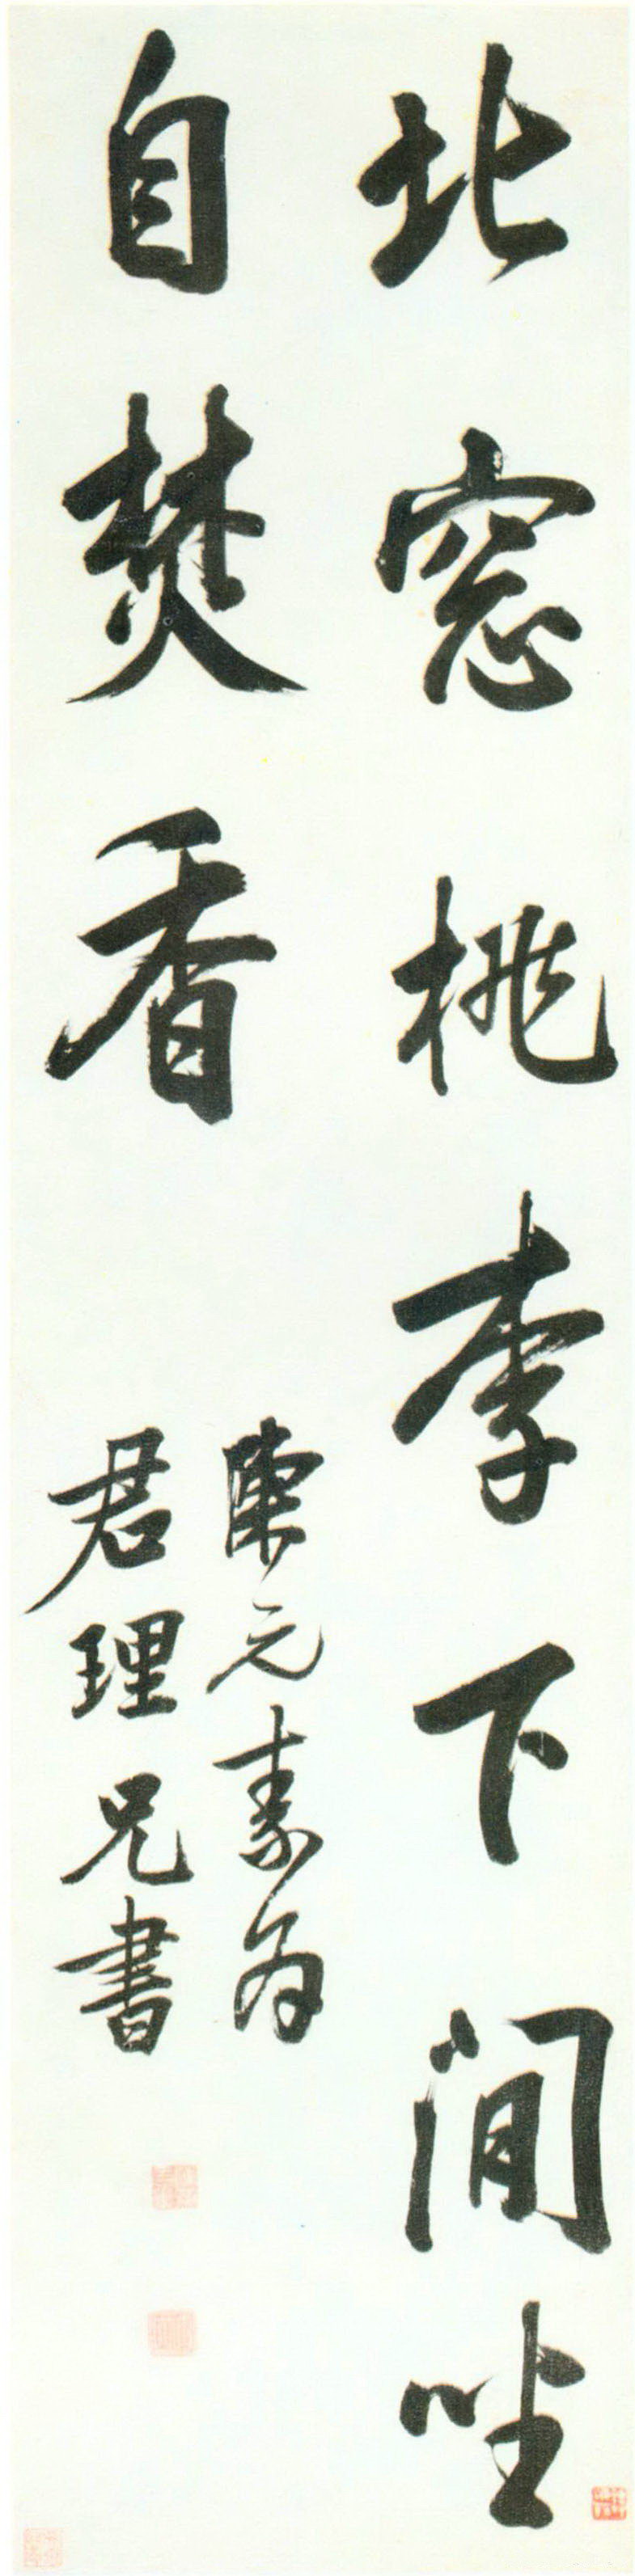 北窓桃李下閒坐
自焚香
陳元素為
君理兄書